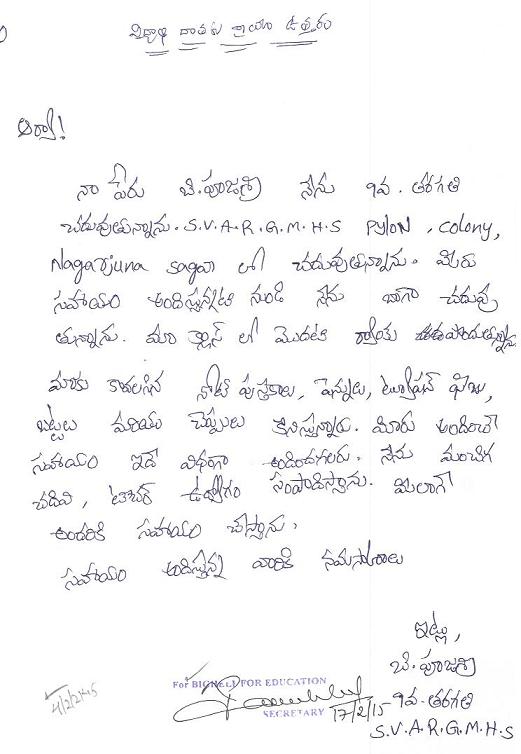 విద్యార్థి దాతకు వ్రాయు ఉత్తరం
ఆర్యా!
నా పేరు బి.పూజశ్రీ నేను 9వ. తరగతి
చదువుతున్నాను. S.V.A.R.G.M.H.S PYLON, colony,
Nagarjuna sagar లో చదువుతున్నాను. మీరు
సహాయం అందిస్తున్నప్పటి నుండి నేను బాగా చదువు
తున్నాను. మా క్లాస్ లో మొదటి ర్యాంకు పొందుతున్నాను
మాకు కావలసిన నోట్ పుస్తకాలు, పెన్నులు, ట్యూషన్ ఫీజు,
బట్టలు మరియు చెప్పులు కొనిస్తున్నారు. మీరు అందించే
సహాయం ఇదే విధంగా అందించగలరు. నేను మంచిగ
చదివి, టీచర్ ఉద్యోగం సంపాదిస్తాను. మీలాగే
అందరికి సహాయం చేస్తాను.
సహాయం అందిస్తున్న వారికి నమస్కారాలు
ఇట్లు,
బి.పూజశ్రీ
9వ.తరగతి
S.V.A.R.G.M.H.S
For BIGHELP FOR EDUCATION
SECRETARY 17/2/15
4/2/2015